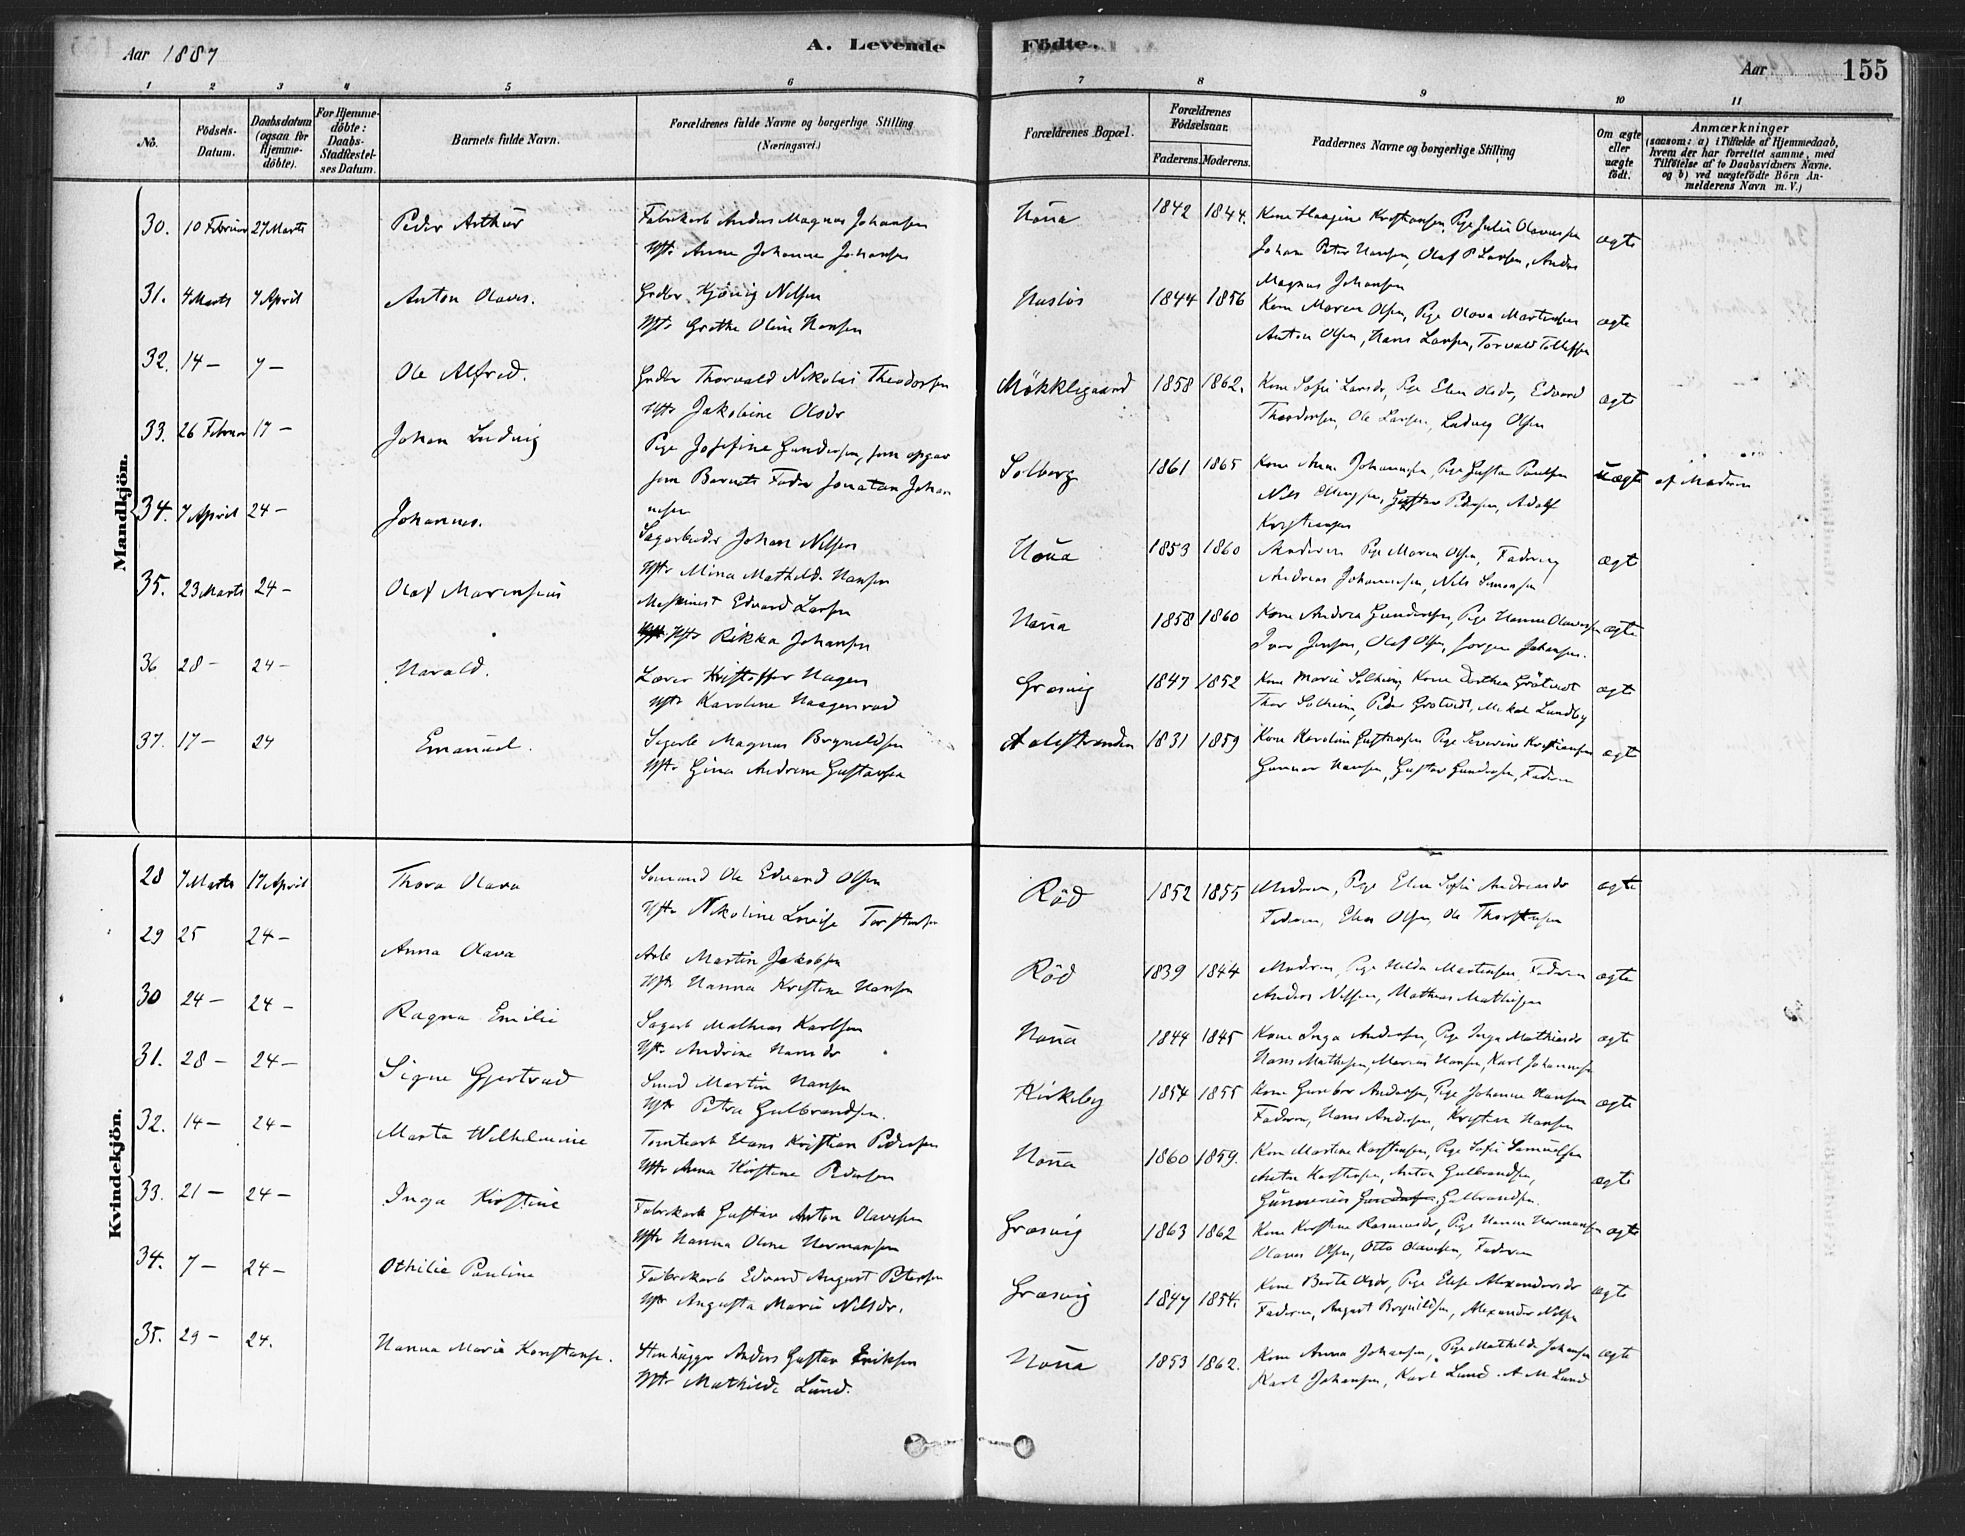 Aar 1887
A. Levende Födte.
Aar
155
1 2 3 4 5 6 7 8 9 10 11
No.
Födsels-Datum.
Daabsdatum (ogsaa for Hjemme-döbte).
For Hjemme-döbte: Daabs-Stadfæstel-ses Datum.
Barnets fulde Navn.
Forældrenes fulde Navne og borgerlige Stilling
(Næringsvei.)
Forældrenes Bopæl.
Forældrenes Födselsaar.
Faderens. Moderens.
Faddernes Navne og borgerlige Stilling
Om ægte eller uægte födt.
Anmærkninger
(saasom: a) i Tilfælde af Hjemmedaab,
hvem der har forrettet samme, med
Tilföielse af to Daabsvidners Navne.
og b) ved uægtefödte Börn An-
melderens Navn m. V.)
Mandkjön.
30. 10 Februar 27 Marts Peder Arthur Fabrikarb Anders Magnus Johansen Houa 1842 1844. Kone Haagine Kristiansen, Pige Julie Olavesen ægte
Hstr Anne Johanne Johansen Johan Peter Hansen, Olaf P Larsen, Anders
Magnus Johansen
31. 4 Marts 7 April Anton Olaves. Grdbr Nilsen 1844 1856 Kone Maren Olsen, Pige Olava Martinsen ægte
Hstr Grethe Oline Hansen Anton Olsen, Hans Larsen, Torvald Tollefsen
32. 14 – 7 – Ole Alfred. Grdbr Thorvald Nikolai Theodorsen Mökklegaard 1858 1862. Kone Sofie Larsdr, Pige Elen Olsdr, Edvard ægte
Hstr Jakobine Olsdr Theodorsen, Ole Larsen, Ludvig Olsen
33. 26 Februar 17 – Johan Ludvig Pige Josefine Gundersen, som opgav Solberg 1861 1865 Kone Anne Johannesen, Pige Gusta Paulsen uægte af Moderen
som Barnets Fader Jonatan Johan
nesen
Nils, Gustav Pedersen, Adolf
Kristiansen
34. 7 April 24 – Johannes. Sagarbeider Johan Nilsen Houa 1853 1860 Moderen Pige Maren Olsen, Faderen ægte
Hstr Mina Mathilde Hansen Andreas Johannesen, Nils Simonsen
35. 23 Marts 24 – Olaf Marensius Maskinist Edvard Larsen Houa 1858 1860 Kone Andrea Gundersen, Pige Hanne Olavesen ægte
Hstr Rikka Johansen Iver Jensen, Olaf Olsen, Jørgen Johansen.
36 28 – 24 – Harald. Lærer Kristoffer Hagen Græsvig 1847 1852 Kone Marie Solheim, Kone Dorthea Grötvedt ægte
Hstr Karoline Haagensrud Thor Solheim, Peder Grötvedt, Mikal Lundby
37. 17 – 24 Emanuel. Sagarb Magnus Bryneldsen Aalestranden 1831 1859 Kone Karoline Gustavsen Pige Severine Kristiansen ægt
Hstr Gina Andrine Gustavsen Gunnar Hansen, Gustav Gundersen, Faderen
Kvindekjön.
28 7 Marts 17 April Thora Olava Sømand Ole Edvard Olsen Röd 1852 1855 Moderen, Pige Elen Sofie Andreasdr ægte
Hstr Nikoline Lovise Torstensen Faderen, Elias Olsen, Ole Thorstensen
29 25 24 – Anna Olava Arb Martin Jakobsen Röd 1839 1844 Moderen, Pige Hilda Martinsen, Faderen ægte
Hstr Hanna Kristine Hansen Anders Nilsen, Mathias Mathisen
30 24 – 24 – Ragna Emilie Sagarb Mathias Karlsen Houa 1844 1845 Kone Inga Andersen, Pige Inga Mathiasdr ægte
Hstr Andrine Hansdr Hans Mathisen, Marius Hansen, Karl Johannesen
31. 28 – 24 – Signe Gjertrud Smed Martin Hansen Kirkeby 1854 1855 Kone Gunbor Andersen, Pige Johanne Hansen ægte
Hstr Petra Gulbrandsen. Faderen, Hans Andersen, Kristian Hansen
32. 14 – 24 – Marta Wilhelmine Tomtearb Elans Kristian Pedersen Houa 1860 1859. Kone Martine Karstensen, Pige Sofie Samuelsen ægte
Hstr Anna Kirstine Pedersen Anton Karstensen, Anton Gulbrandsen,
Gunnerius Gulbrandsen.
33. 21 – 24 – Inga Kirstine Fabrikarb Gustav Anton Olavesen Græsvig 1863 1862 Kone Kirstine Rasmusdr, Pige Hanne Hermansen ægte
Hstr Hanna Oline Hermansen Olaves Olsen, Otto Olavesen, Faderen
34. 7 – 24 – Othilie Pauline Fabrikarb Edvard August Petersen Græsvig 1847 1854. Kone Berte Olsdr, Pige Elise Alexandersdr ægte
Hstr Augusta Marie Nilsdr. Faderen, August Bryneldsen, Alexander Nilsen
35. 29 – 24. Hanna Marie Konstanse. Stenhugger Anders Gustav Eriksen Houa 1853 1862. Kone Anna Johansen, Pige Mathilde Johansen ægte
Hstr Mathilde Lund. Karl Johansen, Karl Lund. A M Lund